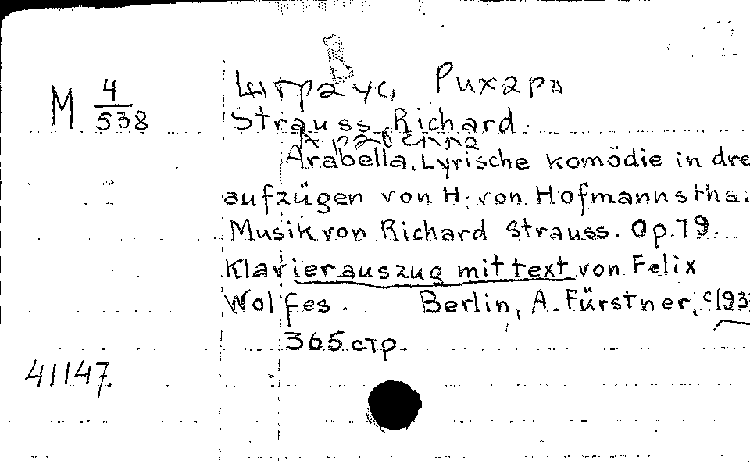 В
Штраус, Рихард
М 4/538
Strauss, Richard.
Arabella. Lyrische komödie in drei
aufzügen von H. von Hofmannsthal
Musik von Richard Strauss. Op. 79.
Klavierauszug mit text von Felix
Wolfes. Berlin, A. Fürstner, c193
365 стр.
41147.